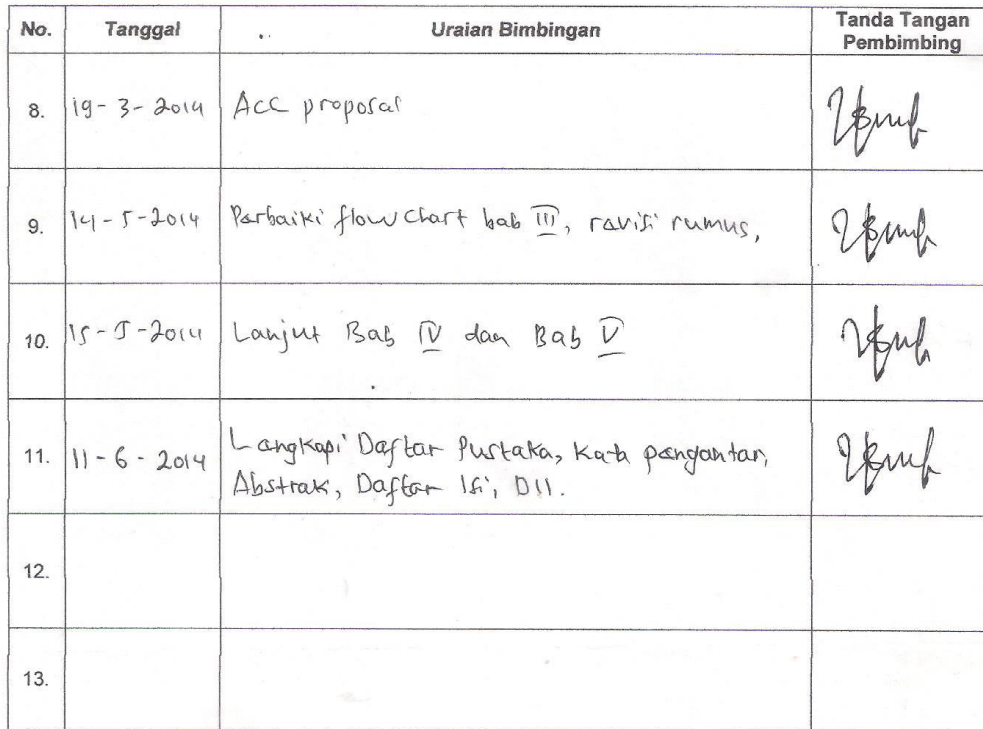 No. Tanggal Uraian Bimbingan Tanda Tangan Pembimbing
8. 19-3-2014 Acc proposal
9. 14-5-2014 Perbaiki flowchart bab III, revisi rumus,
10. 15-5-2014 Lanjut Bab IV dan Bab V
11. 11-6-2014 Lengkapi Daftar Pustaka, Kata pengantar,
Abstrak, Daftar Isi, Dll.
12.
13.